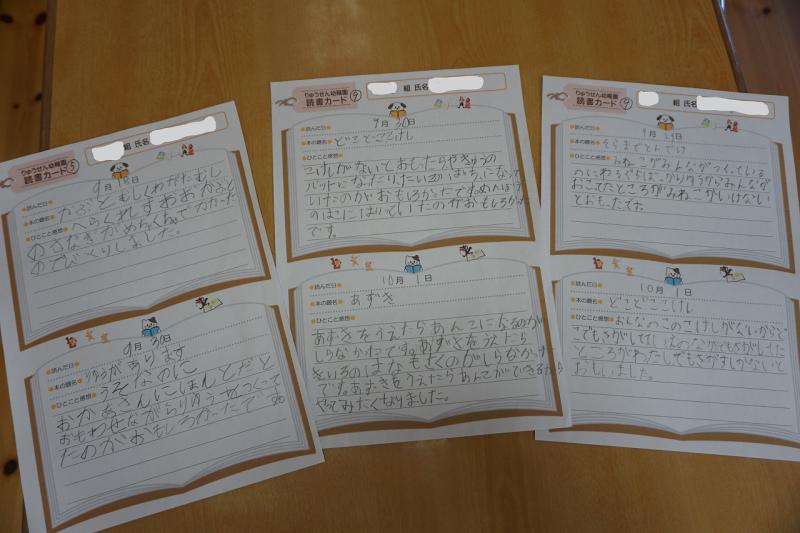 りゅうせん幼稚園
読書カード ⑤
組 氏名
読んだ日 9月18日
本の題名 かぶとむしくわがたむし
ひとこと感想 へらくれすおおかぶと
のさなぎがめちゃくちゃでかかった
のでびっくりしました。
読んだ日 9月30日
本の題名 りゆうがあります
ひとこと感想 うそなのに
おかあさんにほんとだと
おもわせながらりゆうをつくって
たのがおもしろかったです。
りゅうせん幼稚園
読書カード ⑨
組 氏名
読んだ日 9月30日
本の題名 どこどこここけし
ひとこと感想
こけしがないとおもったらやきゅうの
バットになったり、たいこのばちになって
いたのがおもしろかったです。めんぼう
のはこにはいっていたのがおもしろかった
です。
読んだ日 10月1日
本の題名 あずき
ひとこと感想
あずきをうえたらあんこになるのが
しらなかたです。あずきをうえたら
きいろのはなもさくのがしらなかった
です。あずきをうえたらあんこができるから
やってみたくなりました。
りゅうせん幼稚園
読書カード ⑨
組 氏名
読んだ日 9月 日
本の題名 そらまでとんでけ
ひとこと感想
おこてたところが
とおもったです。
読んだ日 10月1日
本の題名 どこどこここけし
ひとこと感想 おんなのこのこけしがないからど
こでもさがしてて
ところがわたしでもさがすしかないと
おもいました。